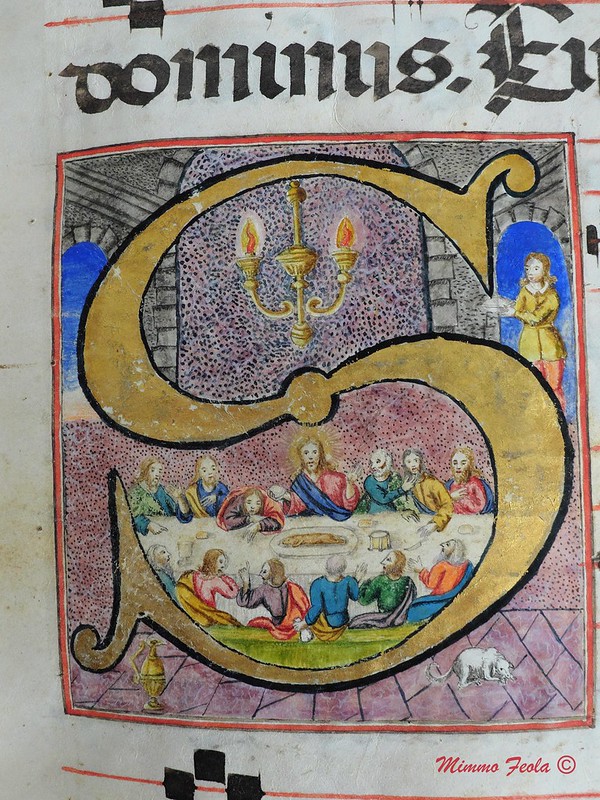 dominus.
S
Mimmo Feola ©